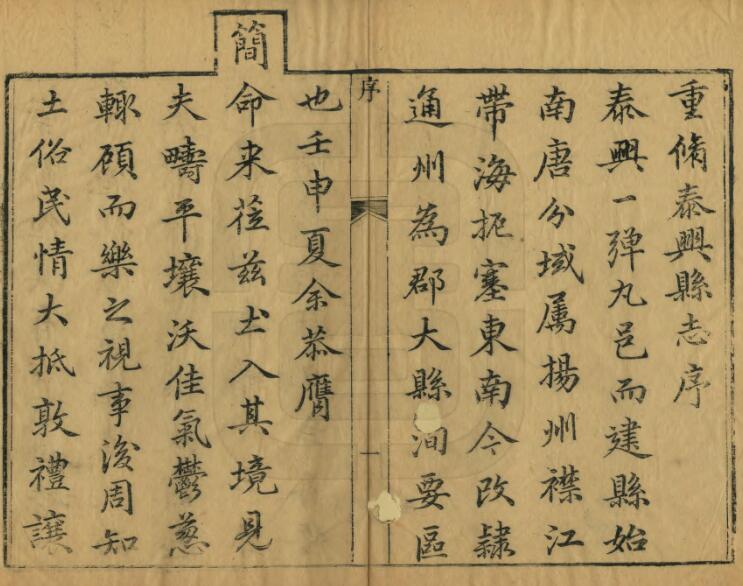 重脩泰興縣志序
泰興一彈丸邑而建縣始
南唐分域属揚州襟江
帶海扼塞東南今改隸
通州為郡大縣洵要區
序
一
也壬申夏余恭膺
簡命来莅兹土入其境見
夫疇平壤沃佳氣鬱葱
輙顧而樂之視事後周知
土俗民情大抵敦禮讓